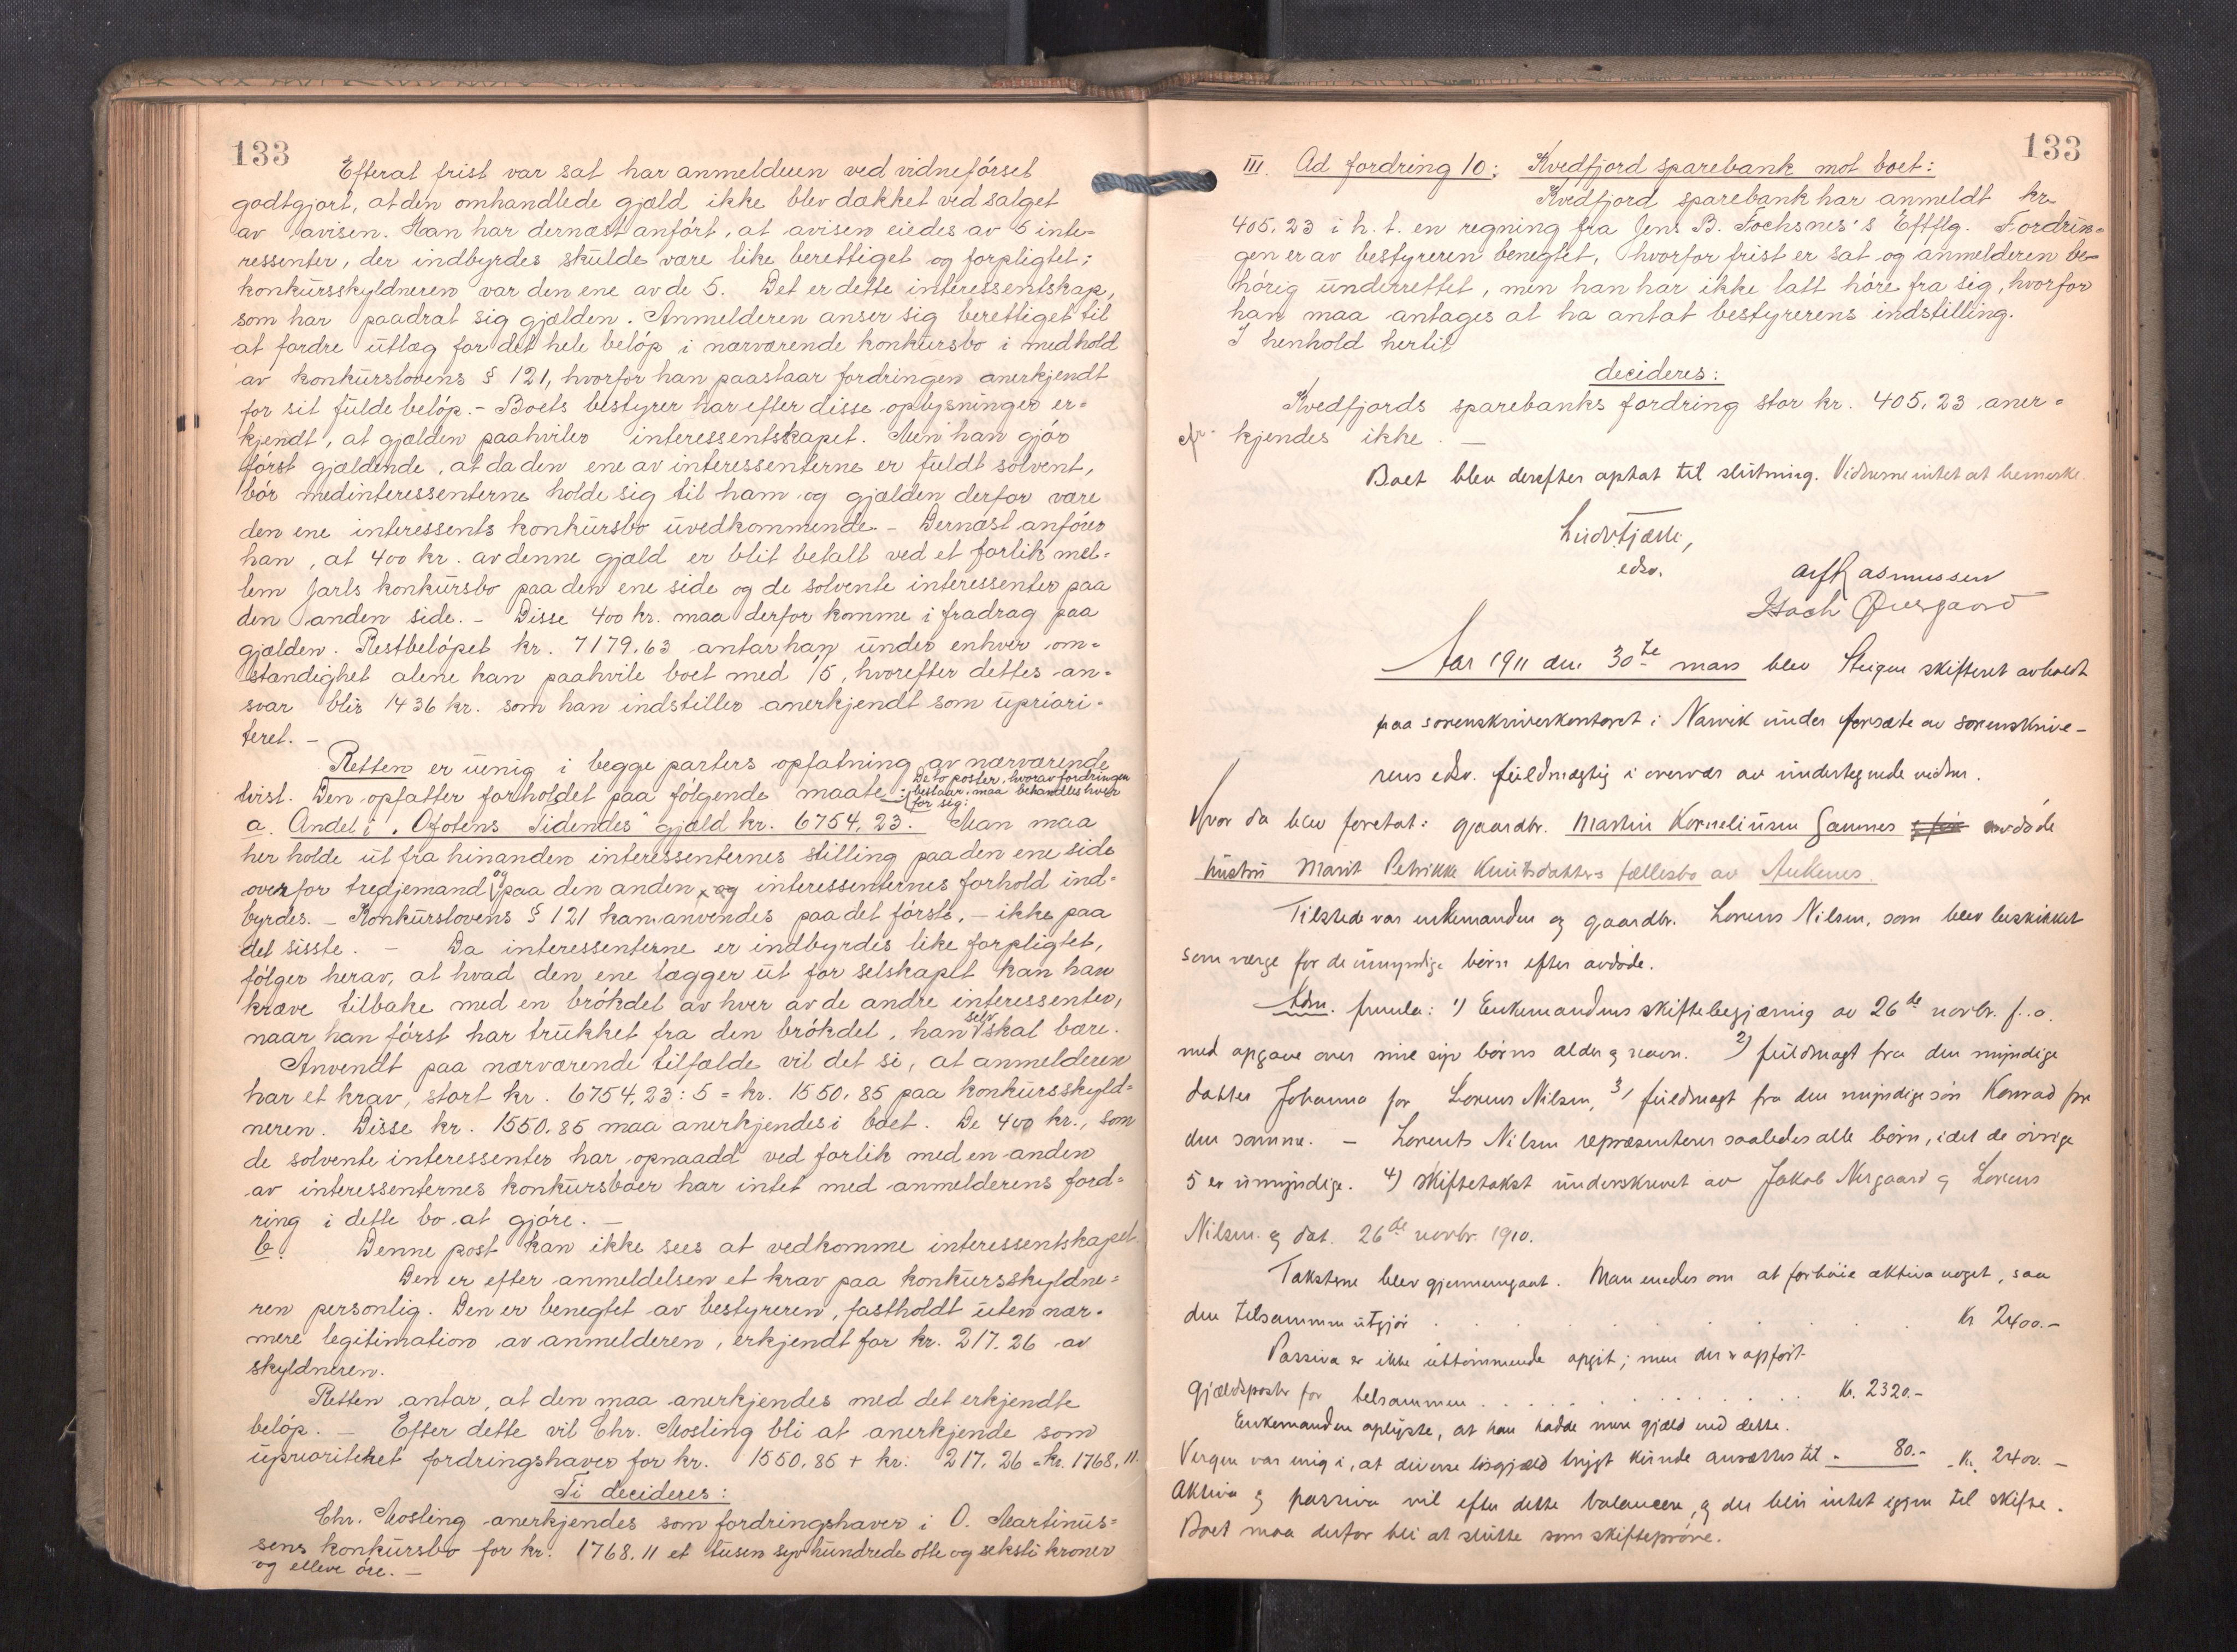 133
Efterat frist var sat har anmelderen ved vidneförsel
godtgjort, at den omhandlede gjæld ikke blev dækket ved salget
av avisen. Han har dernæst anfört, at avisen eiedes av 5 inte=
ressenter, der indbyrdes skulde være like berettiget og forpligtet;
konkursskyldneren var den ene av de 5. Det er dette interessentskap,
som har paadrat sig gjælden. Anmelderen anser sig berettiget til
at fordre utlæg for det hele belöp i nærværende konkursbo i medhold
av konkurslovens § 121, hvorfor han paastaar fordringen anerkjendt
for sit fulde belöp. - Boets bestyrer har efter disse oplysninger er=
kjendt, at gjælden paahviler interessentskapet. Men han gjör
först gjældende, at da den ene av interessenterne er fuldt solvent,
bör medinteressenterne holde sig til ham og gjælden derfor være
den ene interessents konkursbo uvedkommende. - Dernæst anförer
han, at 400 kr. av denne gjæld er blit betalt ved et forlik mel=
lem Jarls konkursbo paa den ene side og de solvente interessenter paa
den anden side. - Disse 400 kr. maa derfor komme i fradrag paa
gjælden. Restbelöpet kr. 7179.63 antar han under enhver om=
stændighet alene kan paahvile boet med 1/5, hvorefter dettes an=
svar blir 1436 kr. som han indstiller anerkjendt som upriori=
teret. -
Retten er uenig i begge parters opfatning av nærværende
tvist. Den opfatter forholdet paa fölgende maate: De to poster, hvorav fordringen
bestaar, maa behandles hver
for sig:
a. Andel i „Ofotens Tidendes" gjæld kr. 6754.23. Man maa
her holde ut fra hinanden interessenternes stilling paa den ene side
overfor tredjemand og paa den anden, og interessenternes forhold ind=
byrdes. - Konkurslovens § 121 kan anvendes paa det förste, - ikke paa
det sisste. - Da interessenterne er indbyrdes like forpligtet,
fölger herav, at hvad den ene lægger ut for selskapet kan han
kræve tilbake med en brökdel av hver av de andre interessenter,
naar han först har trukket fra den brökdel, han selv skal bære.
Anvendt paa nærværende tilfælde vil det si, at anmelderen
har et krav, stort kr. 6754.23 : 5 = kr. 1550.85 paa konkursskyld=
neren. Disse kr. 1550.85 maa anerkjendes i boet. De 400 kr., som
de solvente interessenter har opnaadd ved forlik med en anden
av interessenternes konkursboer har intet med anmelderens ford=
ring i dette bo at gjöre. -
b. Denne post kan ikke sees at vedkomme interessentskapet.
Den er efter anmeldelsen et krav paa konkursskyldne=
ren personlig. Den er benegtet av bestyreren, fastholdt uten nær=
mere legitimation av anmelderen, erkjendt for kr. 217.26 av
skyldneren.
Retten antar, at den maa anerkjendes med det erkjendte
belöp. - Efter dette vil Chr. Mosling bli at anerkjende som
uprioritehet fordringshaver for kr. 1550.85 + kr. 217.26 = kr. 1768.11.
Ti decideres:
Chr. Mosling anerkjendes som fordringshaver i O. Martinus=
sens konkursbo for kr. 1768.11 et tusen syv hundrede otte og seksti kroner
og elleve öre. -
133
III. Ad fordring 10: Kvedfjord sparebank mot boet:
Kvedfjord sparebank har anmeldt kr.
405.23 i h. t. en regning fra Jens B. Fochsnes's Efftflg. Fordrin=
gen er av bestyreren benegtet, hvorfor frist er sat og anmelderen be=
hörig underrettet, men han har ikke latt höre fra sig, hvorfor
han maa antages at ha antat bestyrerens indstilling.
I henhold hertil
decideres:
Kvedfjords sparebanks fordring stor kr. 405.23 aner=
kjendes ikke. -
Boet blev derefter optat til slutning. Vidnerne intet at bemerke.
Ludv. Tjælle,
edsv.
Alf Rasmussen
Isach Qvergaard
Aar 1911 den 30te mars blev Steigen skifteret avholdt
paa sorenskriverkontoret i Narvik under forsæte av sorenskrive-
rens edsv. fuldmægtig i overvær av undertegnede vidner.
Hvor da blev foretat: gaardbr. Martin Korneliusen Gammes avdöde
hustru Marit Petrikke Knutsdatters fællesbo av Ankenes.
Tilstede var enkemanden og gaardbr. Lorens Nilsen, som blev beskikket
som værge for de umyndige börn efter avdöde.
Adm. fremla: 1) Enkemandens skiftebegjæring av 26de novbr. f. a.
med opgave over sine syv börns alder og navn. 2) fuldmagt fra den myndige
datter Johanna for Lorens Nilsen, 3) fuldmagt fra den myndige sön Konrad for
den samme. - Lorents Nilsen repræsenterer saaledes alle börn, idet de övrige
5 er umyndige. 4) Skiftetakst underskrevet av Jakob Nergaard og Lorens
Nilsen og dat. 26de novbr. 1910.
Taksterne blev gjennemgaat. Man enedes om at forhöie aktiva noget, saa
den tilsammen utgjör . . . . . . Kr 2400.-
Passiva er ikke uttömmende opgit; men der er opfört
gjældsposter for tilsammen . . . . . . Kr. 2320.-
Enkemanden oplyste, at han hadde mere gjæld end dette.
Vergen var enig i, at diverse lösgjæld trygt kunde ansættes til - 80.- Kr. 2400. -
Aktiva og passiva vil efter dette balancere, og der blir intet igjen til skifte.
Boet maa derfor bli at slutte som skiftepröve.